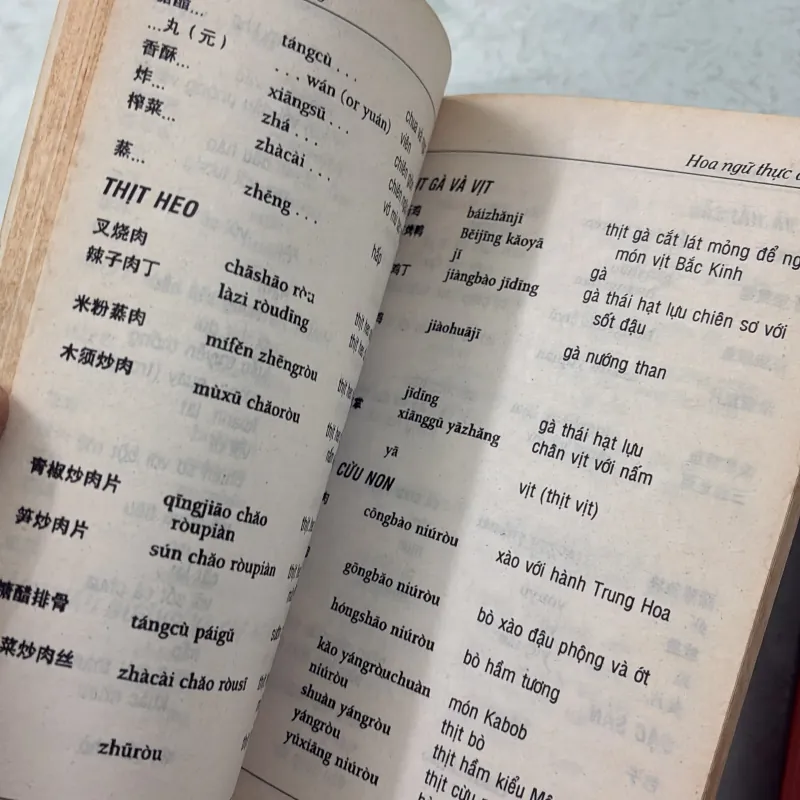 ...丸（元）
香酥...
炸...
榨菜...
蒸...
tángcù ...
... wán (or yuán)
xiāngsū ...
zhá ...
zhàcài ...
zhēng ...
viên
hấp
THỊT HEO
叉烧肉
chāshāo ròu
辣子肉丁
làzi ròudīng
米粉蒸肉
mǐfěn zhēngròu
木须炒肉
mùxū chǎoròu
青椒炒肉片
qīngjiāo chǎo
ròupiàn
笋炒肉片
sún chǎo ròupiàn
糖醋排骨
tángcù páigǔ
菜炒肉丝
zhàcài chǎo ròusī
zhūròu
Hoa ngữ thực
GÀ VÀ VỊT
báizhǎnjī
thịt gà cắt lát mỏng để
烤鸭
Běijīng kǎoyā
món vịt Bắc Kinh
jī
gà
鸡丁
jiàngbào jīdīng
gà thái hạt lựu chiên sơ với
sốt đậu
jiàohuājī
gà nướng than
jīdīng
gà thái hạt lựu
掌
xiānggū yāzhǎng
chân vịt với nấm
yā
vịt (thịt vịt)
CỪU NON
肉
cōngbào niúròu
xào với hành Trung Hoa
gōngbǎo niúròu
bò xào đậu phộng và ớt
hóngshāo niúròu
bò hầm tương
kǎo yángròuchuàn
món Kabob
niúròu
thịt bò
shuàn yángròu
thịt hầm kiểu
yángròu
thịt cừu
yúxiāng niúròu